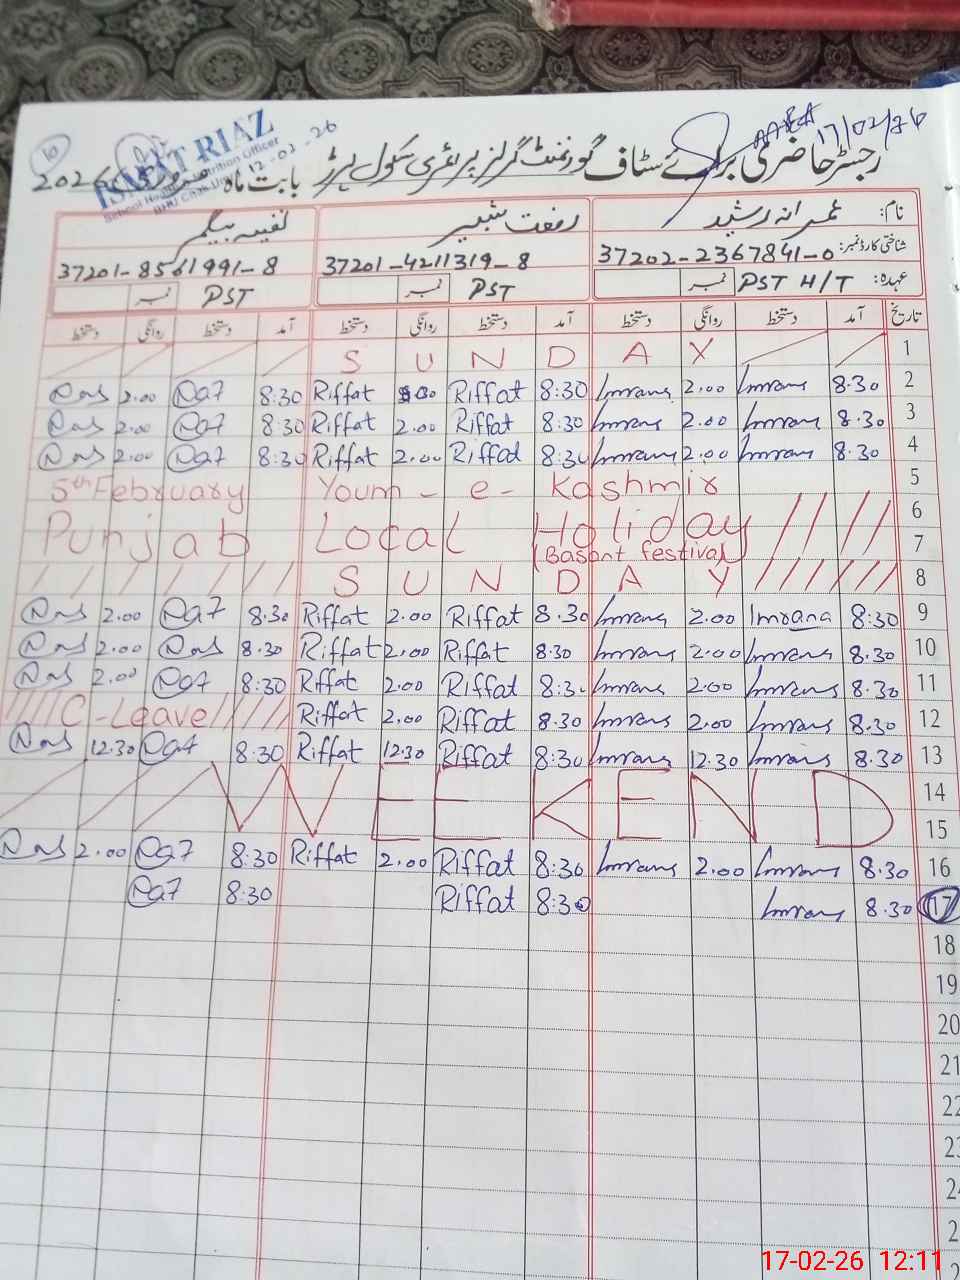 10
ISMAT RIAZ
School Health Nutrition Officer
12-02-26
17/02/26
رجسٹر حاضری برائے سٹاف گورنمنٹ گرلز پرائمری سکول بابت ماہ 2026
نام: عمرانہ رشید رفعت شبیر نفیسہ بیگم
شناختی کارڈ نمبر: 37202-2367841-0 37201-4211319-8 37201-8561991-8
عہدہ: PST H/T نمبر PST نمبر PST نمبر
تاریخ آمد دستخط روانگی دستخط آمد دستخط روانگی دستخط آمد دستخط روانگی دستخط
S U N D A Y 1
2.00 8:30 Riffat Riffat 8:30 Imrana 2.00 Imrana 8.30 2
2.00 8:30 Riffat 2.00 Riffat 8:30 Imrana 2.00 Imrana 8.30 3
2.00 8:30 Riffat 2.00 Riffat 8:30 Imrana 2.00 Imrana 8.30 4
5th February Youm-e-Kashmir 5
Punjab Local Holiday 6
(Basant festival) 7
S U N D A Y 8
2.00 8.30 Riffat 2.00 Riffat 8.30 Imrana 2.00 Imrana 8:30 9
2.00 8.30 Riffat 2.00 Riffat 8:30 Imrana 2.00 Imrana 8.30 10
2.00 8:30 Riffat 2.00 Riffat 8:30 Imrana 2.00 Imrana 8.30 11
C-Leave Riffat 2.00 Riffat 8.30 Imrana 2.00 Imrana 8.30 12
12.30 8:30 Riffat 12.30 Riffat 8:30 Imrana 12.30 Imrana 8.30 13
WEEKEND 14
15
2.00 8:30 Riffat 2.00 Riffat 8:30 Imrana 2.00 Imrana 8.30 16
8:30 Riffat 8:30 Imrana 8.30 17
18
19
20
21
22
23
17-02-26 12:11